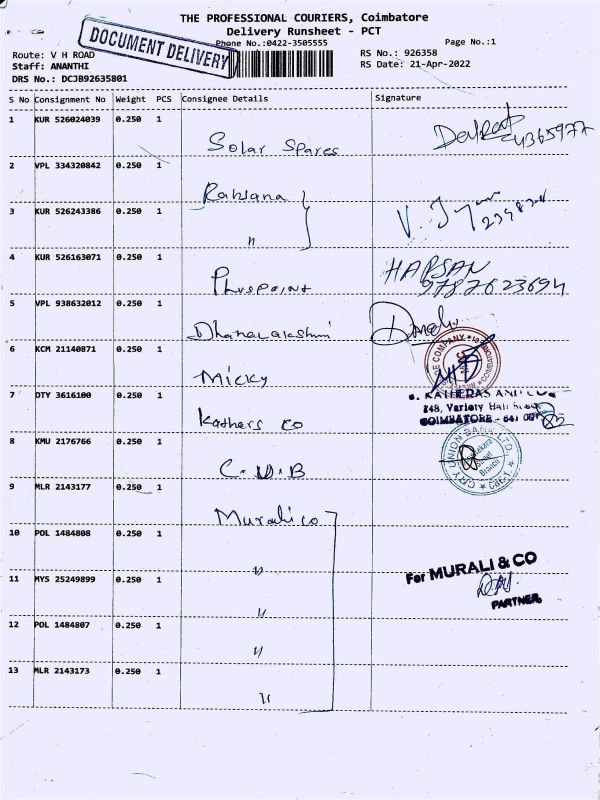 THE PROFESSIONAL COURIERS, Coimbatore
Delivery Runsheet - PCT
DOCUMENT DELIVERY
Phone No.:0422-3505555
Page No.:1
Route: V H ROAD
RS No.: 926358
Staff: ANANTHI
RS Date: 21-Apr-2022
DRS No.: DCJB92635801
S No Consignment No Weight PCS Consignee Details Signature
1 KUR 526024039 0.250 1
Solar Spares
2 VPL 334320842 0.250 1
3 KUR 526243386 0.250 1
"
4 KUR 526163071 0.250 1
HAPSAN
9787623694
Pluspoint
5 VPL 938632012 0.250 1
Dhanalakshmi
6 KCM 21140871 0.250 1
Micky
7 OTY 3616100 0.250 1
248, Variety Hall Road
COIMBATORE - 641 001
Kathers co
8 KMU 2176766 0.250 1
CITY UNION BANK LTD.
Branch
CBE-1
C.U.B
9 MLR 2143177 0.250 1
Murali co
10 POL 1484808 0.250 1
"
For MURALI & CO
11 MYS 25249899 0.250 1
PARTNER.
"
12 POL 1484807 0.250 1
"
13 MLR 2143173 0.250 1
"